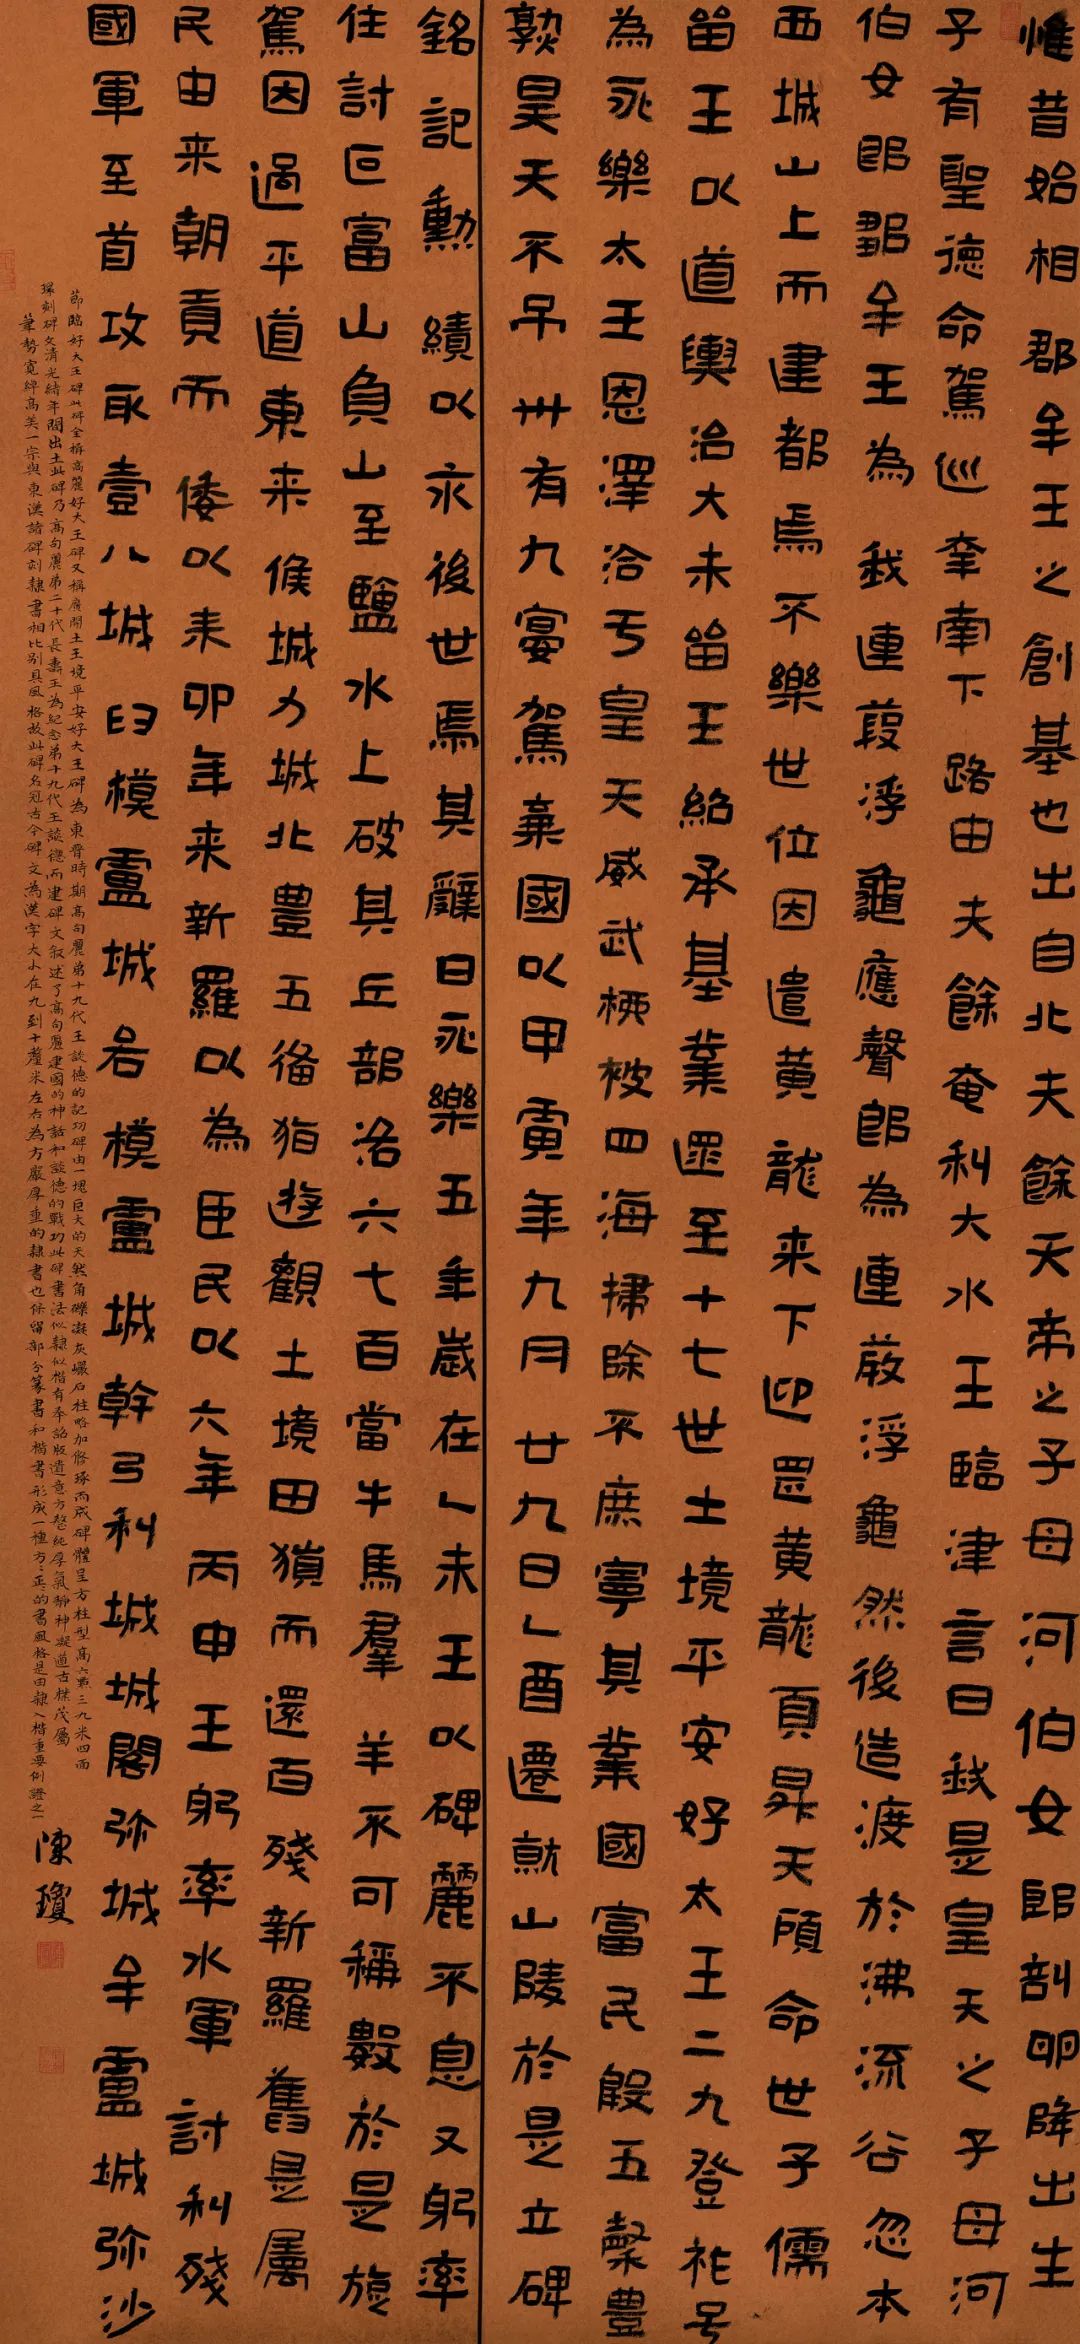 惟昔始相郡牟王之創基也出自北夫餘天帝之子母河伯女郎剖卵降出生
子有聖德命駕巡幸南下路由夫餘奄利大水王臨津言曰我是皇天之子母河
伯女郎鄒牟王為我連葭浮龜應聲即為連葭浮龜然後造渡於沸流谷忽本
西城山上而建都焉不樂世位因遣黃龍来下迎罡黃龍頁昇天顧命世子儒
留王以道輿治大朱留王紹承基業遝至十七世土境平安好太王二九登祚号
為永樂太王恩澤洽亏皇天威武柳被四海掃除不庶寧其業國富民殷五穀豊
熟昊天不弔卅有九宴駕棄國以甲寅年九月廿九日乚酉遷就山陵於是立碑
銘記勳績以永後世焉其辭曰永樂五年歲在乚未王以碑麗不息又躬率
住討叵富山負山至鹽水上破其丘部洛六七百當牛馬羣羊不可稱數於是旋
駕因過平道東来候城力城北豊五備猶遊觀土境田獵而還百殘新羅舊是属
民由来朝貢而倭以耒卯年来新羅以為臣民以六年丙申王躬率水軍討利殘
國軍至首攻取壹八城臼模盧城各模盧城幹弓利城城閣弥城牟盧城弥沙
節臨好大王碑此碑全稱高麗好大王碑又稱廣開土王境平安好大王碑為東晉時期高句麗第十九代王談德的記功碑由一塊巨大的天然角礫凝灰巖石柱略加修琢而成碑體呈方柱型高六點三九米四面
環刻碑文清光緒年間出土此碑乃高句麗第二十代長壽王為紀念第十九代王談德而建碑文叙述了高句麗建國的神話和談德的戰功此碑書法似隸似楷有奉詔版遺意方整純厚氣靜神凝遒古樸茂屬
筆勢寬綽高美一宗與東漢諸碑刻隸書相比别具風格故此碑名冠古今碑文為漢字大小在九到十釐米左右為方嚴厚重的隸書也保留部分篆書和楷書形成一種方方正正的書風格是由隸入楷重要例證之一
陳瓊